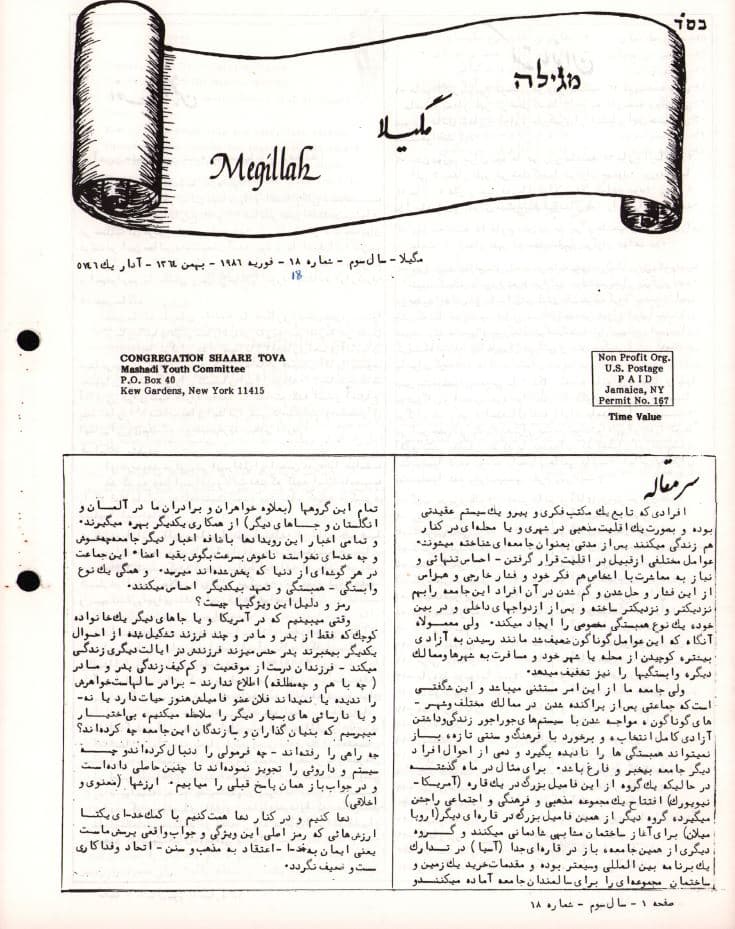 בס"ד
מגילה
مگیلا
Megillah
مگیلا - سال سوم - شماره ۱۸ - فوریه ۱۹۸۶ - بهمن ۱۳٦٤ - آدار یك ۵۷٤٦
18
CONGREGATION SHAARE TOVA
Mashadi Youth Committee
P.O. Box 40
Kew Gardens, New York 11415
Non Profit Org.
U.S. Postage
PAID
Jamaica, NY
Permit No. 167
Time Value
سرمقاله
افرادی که تابع یك مکتب فکری و پیرو یك سیستم عقیدتی
بوده و بصورت یك اقلیت مذهبی در شهری و یا محله‌ای در کنار
هم زندگی میکنند پس از مدتی بعنوان جامعه‌ای شناخته میشوند.
عوامل مختلفی از قبیل در اقلیت قرار گرفتن - احساس تنهائی و
نیاز به معاشرت با اشخاص هم فکر خود و فشار خارجی و هراس
از این فشار و حل شدن و گم شدن در آن افراد این جامعه را بهم
نزدیکتر و نزدیکتر ساخته و پس از ازدواجهای داخلی و در بین
خود، یك نوع همبستگی مخصوصی را ایجاد میکند. ولی معمولا
آنگاه که این عوامل گوناگون ضعیف شد مانند رسیدن به آزادی
بیشتر، کوچیدن از محله یا شهر خود و مسافرت به شهرها و ممالك
دیگر، وابستگیها را نیز تخفیف میدهد.
ولی جامعه ما از این امر مستثنی میباشد و این شگفتی
است که جماعتی پس از پراکنده شدن در ممالك مختلف و شهر -
های گوناگون، مواجه شدن با سیستم‌های جوراجور زندگی و داشتن
آزادی کامل انتخاب، و برخورد با فرهنگ و سنتی تازه، باز
نمیتواند همبستگی ها را نادیده بگیرد و دمی از احوال افراد
دیگر جامعه بیخبر و فارغ باشد. برای مثال در ماه گذشته
در حالیکه یك گروه از این فامیل بزرگ در یك قاره (آمریکا -
نیویورك) افتتاح یك مجموعه مذهبی و فرهنگی و اجتماعی را جشن
میگیرد، گروه دیگر از همین فامیل بزرگ در قاره‌ای دیگر (اروپا
میلان) برای آغاز ساختمان مشابهی شادمانی میکنند و گروه
دیگری از همین جامعه، باز در قاره‌ای جدا (آسیا) در تدارك
یك برنامه بین المللی وسیعتر بوده و مقدمات خرید یك زمین و
ساختمان مجموعه‌ای را برای سالمندان جامعه آماده میکنند و
تمام این گروهها (بعلاوه خواهران و برادران ما در آلمان و
انگلستان و جاهای دیگر) از همکاری یکدیگر بهره میگیرند.
و تمامی اخبار این رویدادها باضافه اخبار دیگر جامعه چه خوش
و چه خدای نخواسته ناخوش بسرعت بگوش بقیه اعضاء این جماعت
در هر گوشه‌ای از دنیا که پخش شده‌اند میرسد. و همگی یك نوع
وابستگی - همبستگی و تعهد بیکدیگر احساس میکنند.
رمز و دلیل این ویژگیها چیست؟
وقتی میبینیم که در آمریکا و یا جاهای دیگر یك خانواده
کوچك که فقط از پدر و مادر و چند فرزند تشکیل شده از احوال
یکدیگر بیخبرند پدر حدس میزند فرزندش در ایالت دیگری زندگی
میکند - فرزندان درست از موقعیت و کم کیف زندگی پدر و مادر
(چه با هم و چه مطلقه) اطلاع ندارند - برادر سالهاست خواهرش
را ندیده یا نمیداند فلان عضو فامیلش هنوز حیات دارد یا نه -
و یا نارسائی های بسیار دیگر را ملاحظه میکنیم، بی اختیار
میپرسیم که بنیان گذاران و سازندگان این جامعه چه کرده‌اند؟
چه راهی را رفته‌اند - چه فرمولی را دنبال کرده‌اند و چه
سیستم و داروئی را تجویز نموده‌اند تا چنین حاصلی داده است
و در جواب باز همان پاسخ قبلی را میابیم. ارزشها (معنوی و
اخلاقی)
دعا کنیم و در کنار دعا همت کنیم با کمك خدای یکتا
ارزش‌هائی که رمز اصلی این ویژگی و جواب واقعی پرسش ماست
یعنی ایمان به خدا - اعتقاد به مذهب و سنن - اتحاد و فداکاری
سست و ضعیف نگردد.
صفحه ۱ - سال سوم - شماره ۱۸